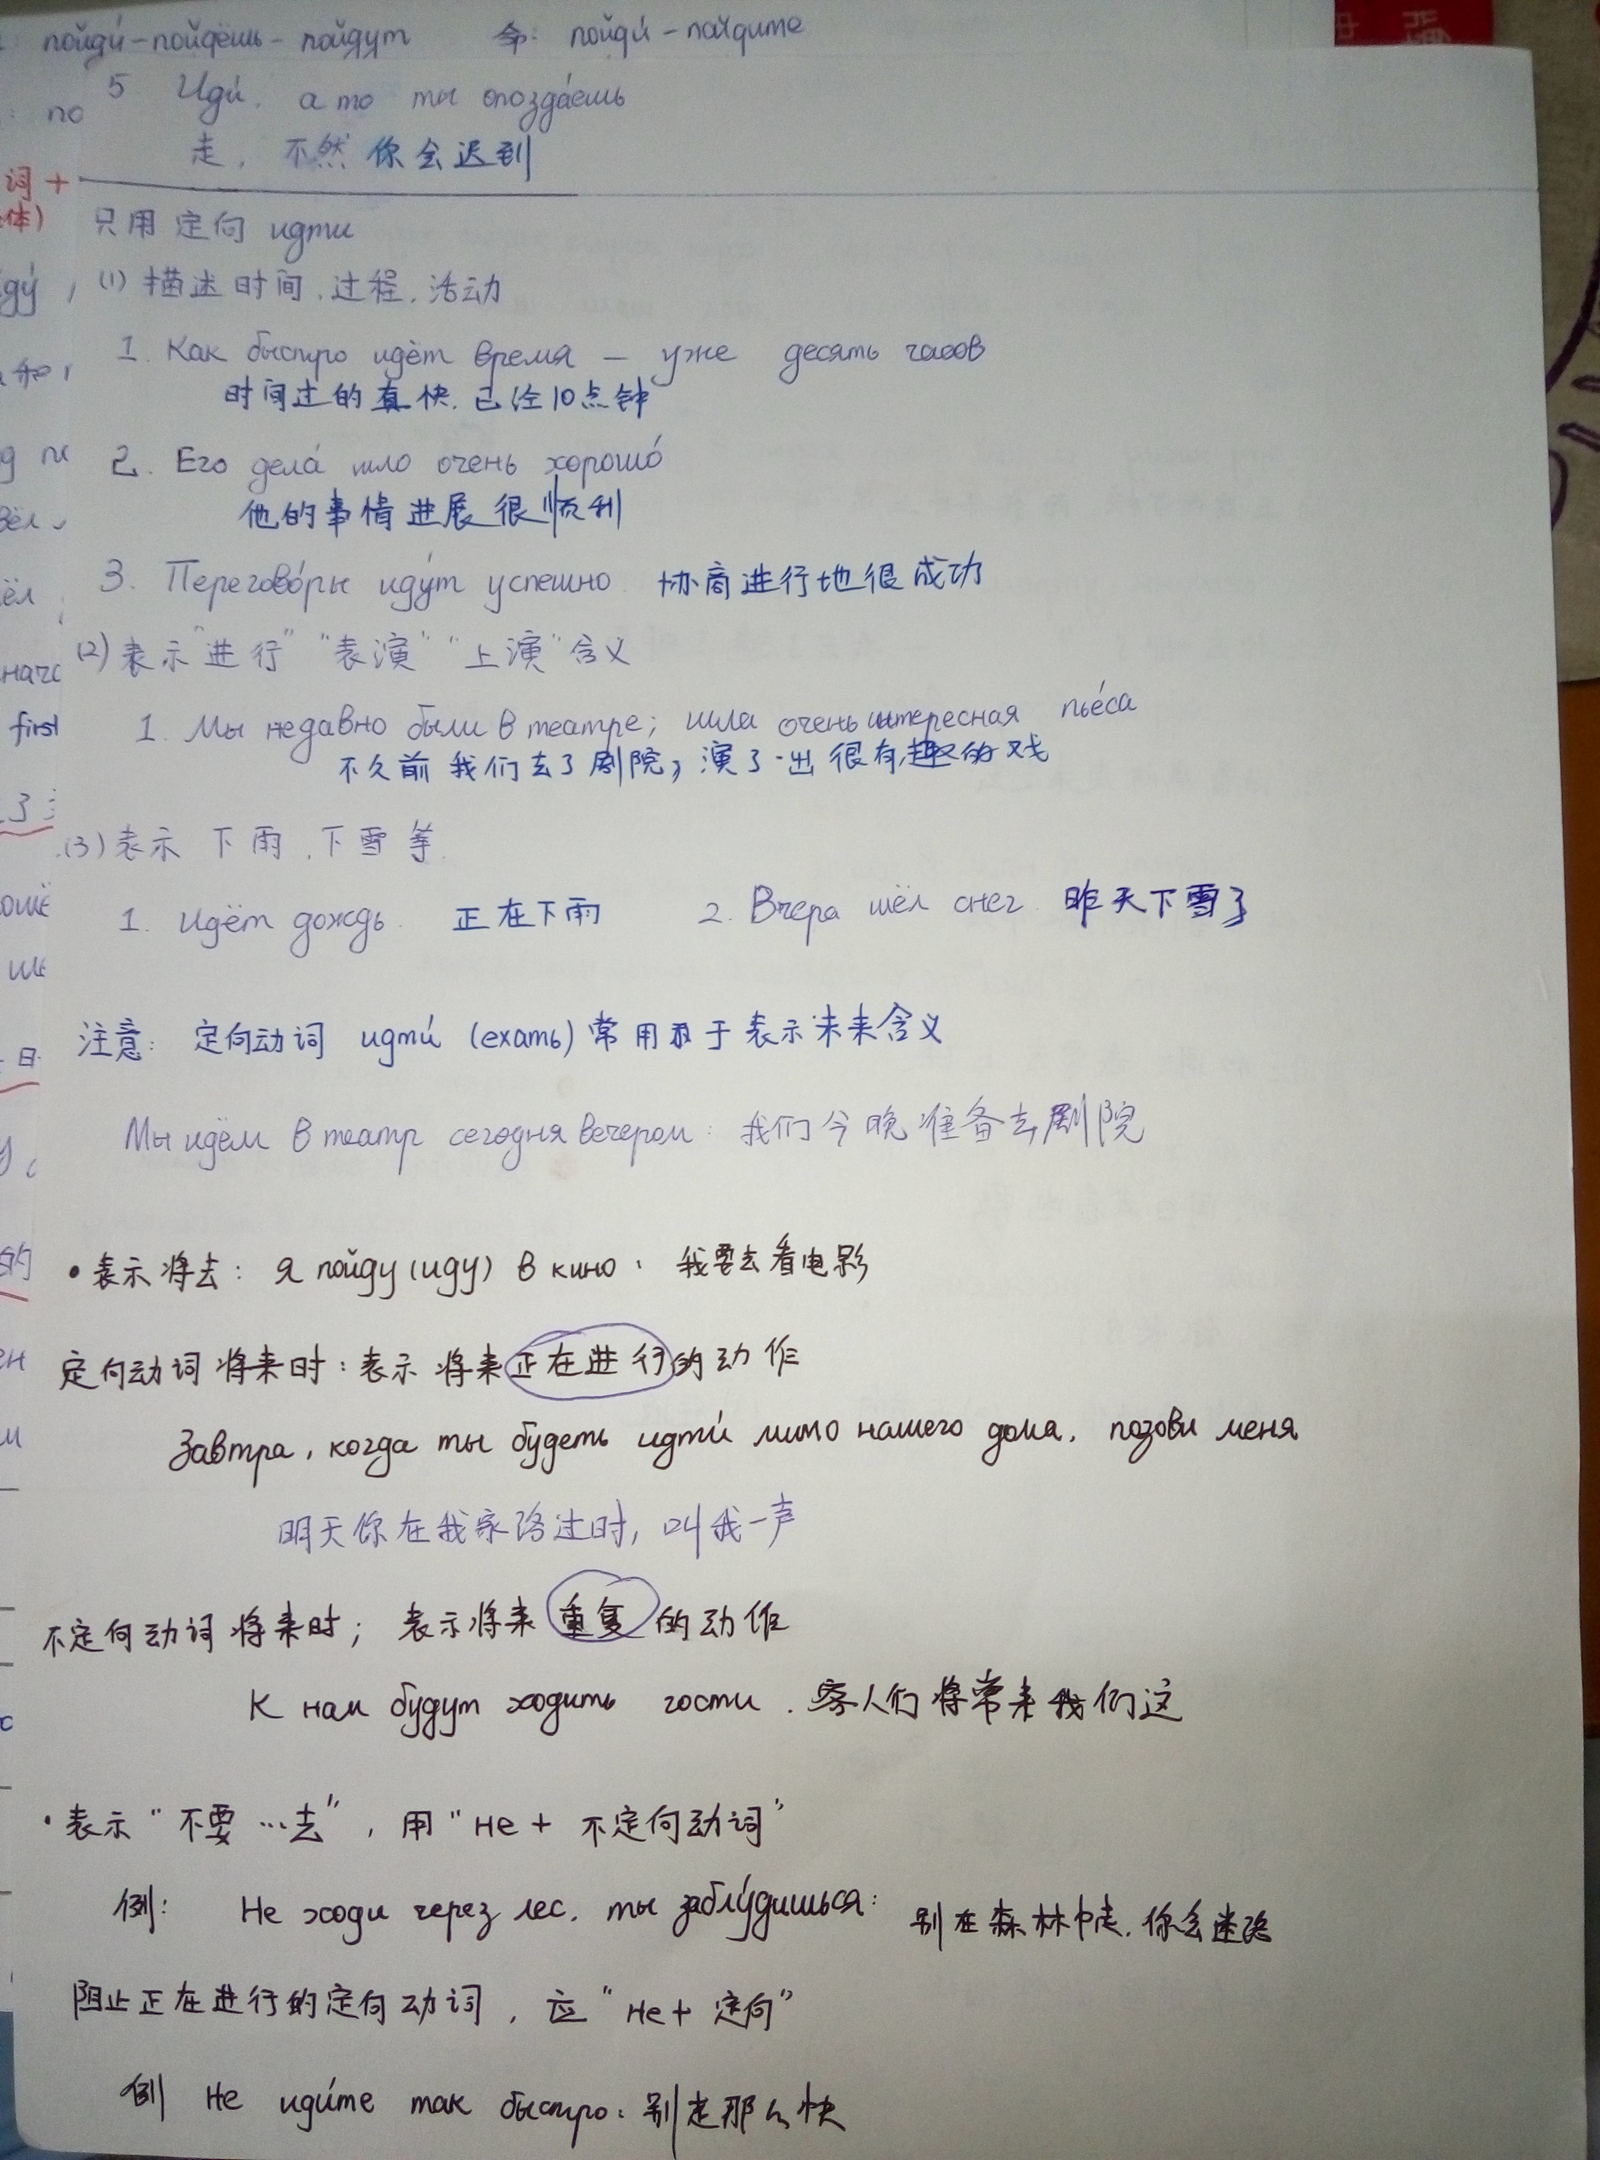 пойди́-пойдёшь-пойдут 命: пойди́-пойдите
: по
5 Иди́, а то ты опозда́ешь
走, 不然 你会迟到
词 +
体)
只用定向 идти
(1) 描述时间.过程.活动
1. Как быстро идёт время — уже десять часов
时间过的真快.已经10点钟
2. Его дела́ шло очень хорошо́
他的事情进展很顺利
3. Перегово́ры иду́т успешно 协商进行地很成功
(2) 表示"进行""表演""上演"含义
first 1. Мы недавно были в театре; шла очень интересная пье́са
不久前我们去了剧院, 演了一出很有趣的戏
(3) 表示 下雨.下雪等.
1. Идёт дождь. 正在下雨 2. Вчера шёл снег. 昨天下雪了
注意: 定向动词 идти́ (ехать) 常用于表示未来含义
Мы идём в театр сегодня вечером: 我们今晚准备去剧院
• 表示将去: Я пойду (иду) в кино: 我要去看电影
定向动词将来时: 表示将来正在进行的动作
Завтра, когда ты будеть идти́ мимо нашего дома, позови меня
明天你在我家路过时, 叫我一声
不定向动词将来时; 表示将来重复的动作
К нам будут ходить гости. 客人们将常来我们这
• 表示"不要…去", 用"не + 不定向动词"
例: Не ходи через лес, ты заблу́дишься: 别在森林中走, 你会迷路
阻止正在进行的定向动词, 应"не + 定向"
例 Не иди́те так быстро: 别走那么快